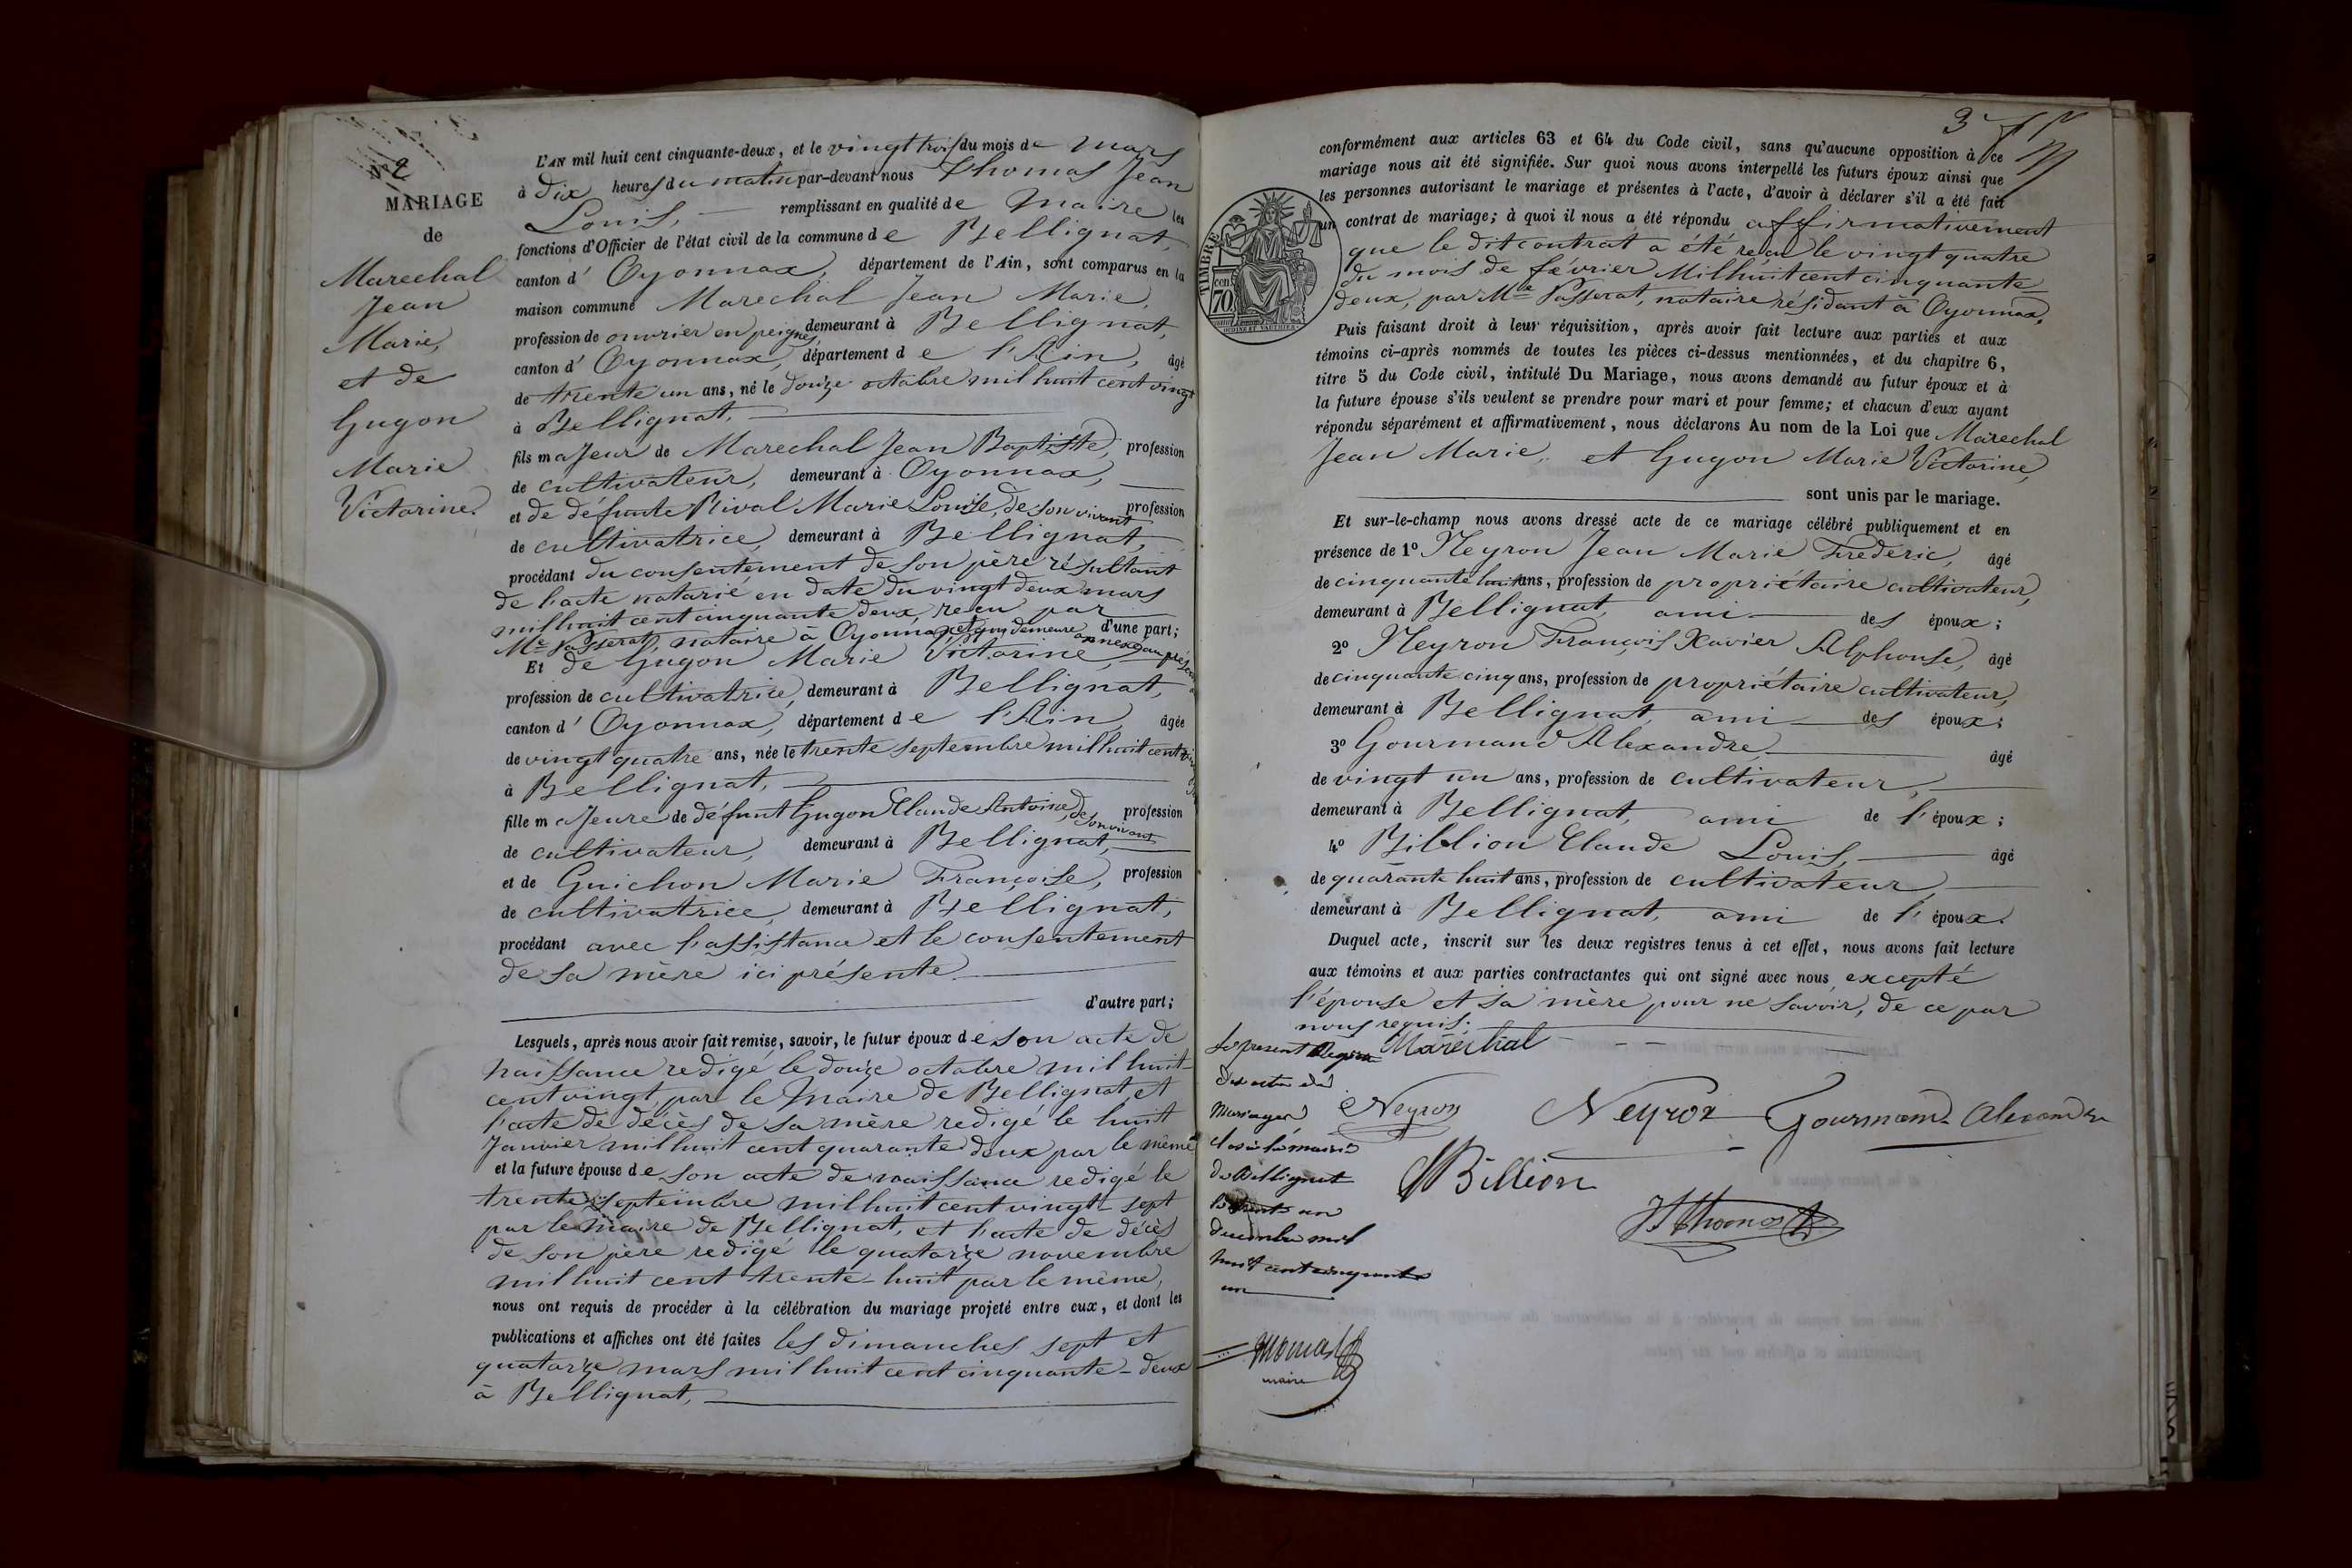 Nº 2
MARIAGE
de
Marechal
Jean
Marie,
et de
Gugon
Marie
Victorine.
L'AN mil huit cent cinquante-deux, et le vingt trois du mois de Mars
à dix heures du matin par-devant nous Thomas Jean
Louis, remplissant en qualité de Maire les
fonctions d'Officier de l'état civil de la commune de Bellignat,
canton d' Oyonnax, département de l'Ain, sont comparus en la
maison commune Marechal Jean Marie,
profession de ouvrier en peignes, demeurant à Bellignat,
canton d' Oyonnax, département de l'Ain, âgé
de trente un ans, né le douze octobre mil huit cent vingt
à Bellignat,
fils majeur de Marechal Jean Baptiste, profession
de cultivateur, demeurant à Oyonnax,
et de défunte Rival Marie Louise, de son vivant profession
de cultivatrice, demeurant à Bellignat,
procédant du consentement de son père résultant
de l'acte notarié en date du vingt deux mars
mil huit cent cinquante deux, reçu par
Me Passerat, notaire à Oyonnax, et qui demeure annexé au présent d'une part;
Et de Gugon Marie Victorine,
profession de cultivatrice, demeurant à Bellignat,
canton d' Oyonnax, département de l'Ain, âgée
de vingt quatre ans, née le trente septembre mil huit cent
à Bellignat,
fille majeure de défunt Gugon Claude Antoine, de son vivant profession
de cultivateur, demeurant à Bellignat,
et de Guichon Marie Françoise, profession
de cultivatrice, demeurant à Bellignat,
procédant avec l'assistance et le consentement
de sa mère ici présente.
d'autre part;
Lesquels, après nous avoir fait remise, savoir, le futur époux de son acte de
naissance redigé le douze octobre mil huit
cent vingt, par le Maire de Bellignat, et
l'acte de décès de sa mère redigé le huit
Janvier mil huit cent quarante deux par le même
et la future épouse de son acte de naissance redigé le
trente septembre mil huit cent vingt-sept
par le maire de Bellignat, et l'acte de décès
de son père redigé le quatorze novembre
mil huit cent trente-huit par le même,
nous ont requis de procéder à la célébration du mariage projeté entre eux, et dont les
publications et affiches ont été faites les dimanches sept et
quatorze mars mil huit cent cinquante-deux
à Bellignat,
3
TIMBRE
70 cen.
conformément aux articles 63 et 64 du Code civil, sans qu'aucune opposition à ce
mariage nous ait été signifiée. Sur quoi nous avons interpellé les futurs époux ainsi que
les personnes autorisant le mariage et présentes à l'acte, d'avoir à déclarer s'il a été fait
un contrat de mariage; à quoi il nous a été répondu affirmativement
que le dit contrat a été reçu le vingt quatre
du mois de février Mil huit cent cinquante
deux, par Me Passerat, notaire résidant à Oyonnax.
Puis faisant droit à leur réquisition, après avoir fait lecture aux parties et aux
témoins ci-après nommés de toutes les pièces ci-dessus mentionnées, et du chapitre 6,
titre 5 du Code civil, intitulé Du Mariage, nous avons demandé au futur époux et à
la future épouse s'ils veulent se prendre pour mari et pour femme; et chacun d'eux ayant
répondu séparément et affirmativement, nous déclarons Au nom de la Loi que Marechal
Jean Marie, et Gugon Marie Victorine,
sont unis par le mariage.
Et sur-le-champ nous avons dressé acte de ce mariage célébré publiquement et en
présence de 1º Neyron Jean Marie Frederic, âgé
de cinquante huit ans, profession de propriétaire cultivateur,
demeurant à Bellignat, ami des époux;
2º Neyron François Xavier Alphonse, âgé
de cinquante cinq ans, profession de propriétaire cultivateur,
demeurant à Bellignat, ami des époux;
3º Gourmand Alexandre, âgé
de vingt un ans, profession de cultivateur,
demeurant à Bellignat, ami de l'époux;
4º Billion Claude Louis, âgé
de quarante huit ans, profession de cultivateur,
demeurant à Bellignat, ami de l'époux.
Duquel acte, inscrit sur les deux registres tenus à cet effet, nous avons fait lecture
aux témoins et aux parties contractantes qui ont signé avec nous, excepté
l'épouse et sa mère pour ne savoir, de ce par
nous requis.
Maréchal
Neyron Neyron Gourmand Alexandre
Billion
Thomas
Le present Registre
des actes de
Mariages
clos à la mairie
de Bellignat
le trente un
decembre mil
huit cent cinquante
un
Thomas
maire